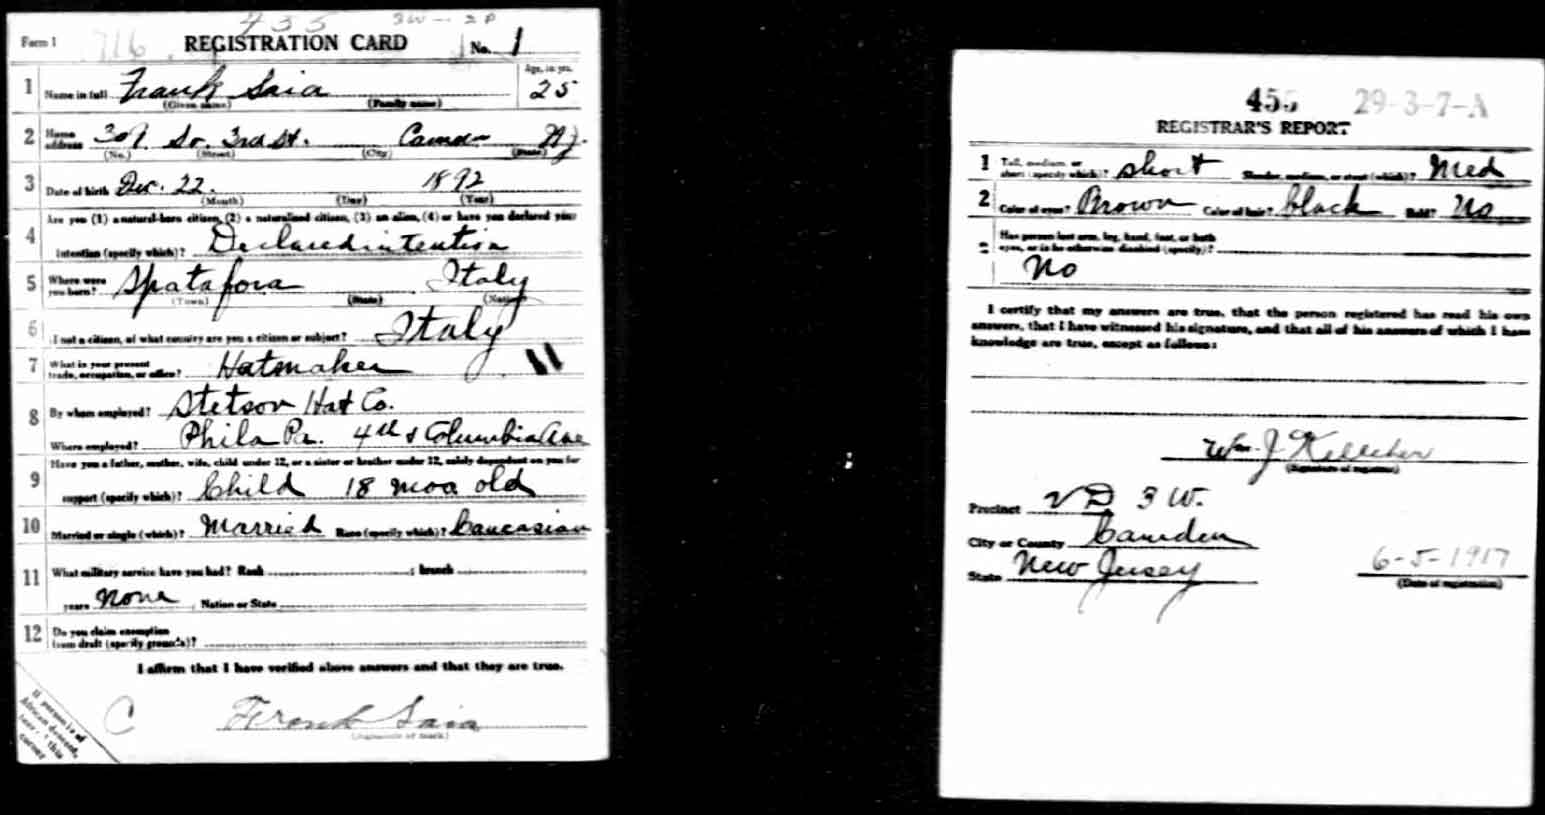 455 3W - 2P
Form 1 716 REGISTRATION CARD No. 1
Age, in yrs.
1 Name in full Frank Saia 25
(Given name) (Family name)
2 Home address 307 So. 3rd St. Camden NJ.
(No.) (Street) (City) (State)
3 Date of birth Dec. 22. 1892
(Month) (Day) (Year)
Are you (1) a natural-born citizen, (2) a naturalized citizen, (3) an alien, (4) or have you declared your
4 intention (specify which)? Declared intention
5 Where were you born? Spatafora Italy
(Town) (State) (Nation)
6 I not a citizen, of what country are you a citizen or subject? Italy
7 What is your present trade, occupation, or office? Hatmaker 11
8 By whom employed? Stetson Hat Co.
Where employed? Phila Pa. 4th & Columbia Ave
Have you a father, mother, wife, child under 12, or a sister or brother under 12, solely dependent on you for
9 support (specify which)? Child 18 mos old
10 Married or single (which)? Married Race (specify which)? Caucasian
11 What military service have you had? Rank ; branch
years None ; Nation or State
12 Do you claim exemption
from draft (specify grounds)?
I affirm that I have verified above answers and that they are true.
C Frank Saia
(Signature or mark)
If person is of
African descent,
this
corner
455 29-3-7-A
REGISTRAR'S REPORT
1 Tall, medium, or
short (specify which)? short Slender, medium, or stout (which)? Med
2 Color of eyes? Brown Color of hair? black Bald? No
Has person lost arm, leg, hand, foot, or both
eyes, or is he otherwise disabled (specify)?
No
I certify that my answers are true, that the person registered has read his own
answers, that I have witnessed his signature, and that all of his answers of which I have
knowledge are true, except as follows:
Wm. J. Kelleher
(Signature of registrar)
Precinct 2 D 3 W.
City or County Camden
State New Jersey 6-5-1917
(Date of registration)